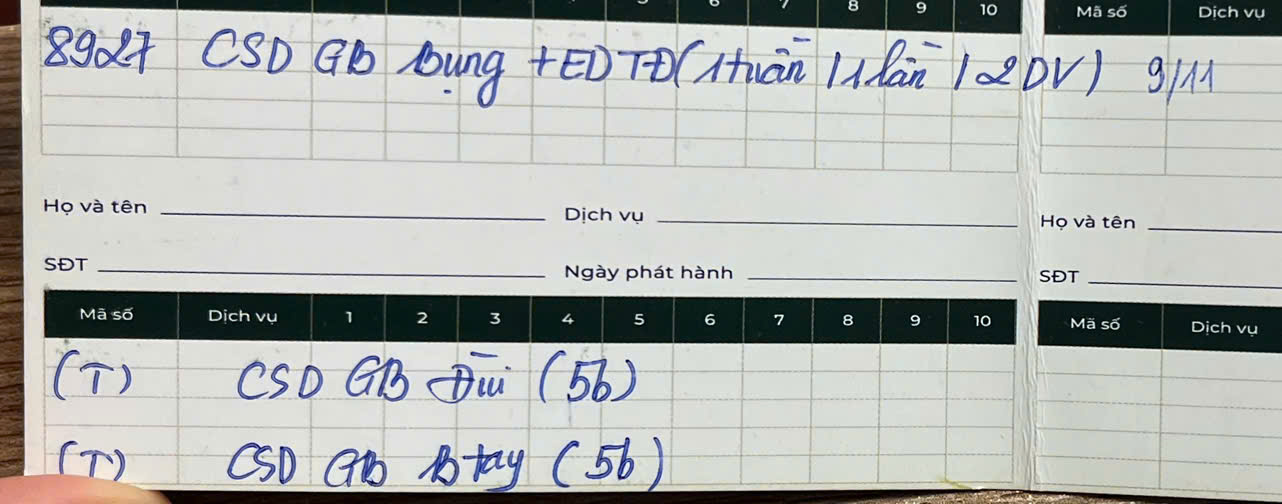 8 9 10 Mã số Dịch vụ
8927 CSD GB Bụng + ED TĐ (1 tuần / 1 lần / 2 DV) 9/11
Họ và tên Dịch vụ Họ và tên
SĐT Ngày phát hành SĐT
Mã số Dịch vụ 1 2 3 4 5 6 7 8 9 10 Mã số Dịch vụ
(T) CSD GB Đùi (5b)
(T) CSD GB B tay (5b)